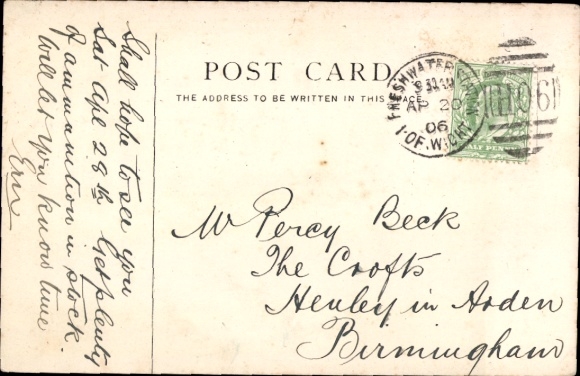 POST CARD
THE ADDRESS TO BE WRITTEN IN THIS SPACE
FRESHWATER
AP 20
06
I. OF. WIGHT
Shall hope to see you
Sat Apl 28th Get plenty
of ammunition in stock.
Will let you know time
Eric
Mr Percy Beck
The Crofts
Henley in Arden
Birmingham